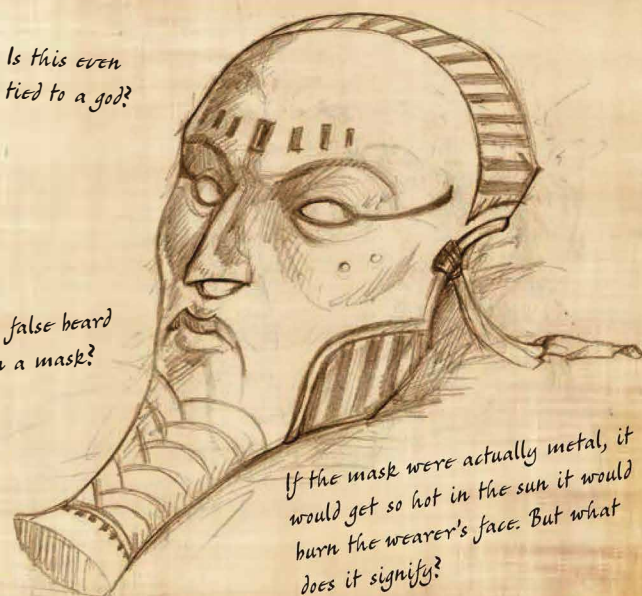 Is this even
tied to a god?
false beard
a mask?
If the mask were actually metal, it
would get so hot in the sun it would
burn the wearer's face. But what
does it signify?